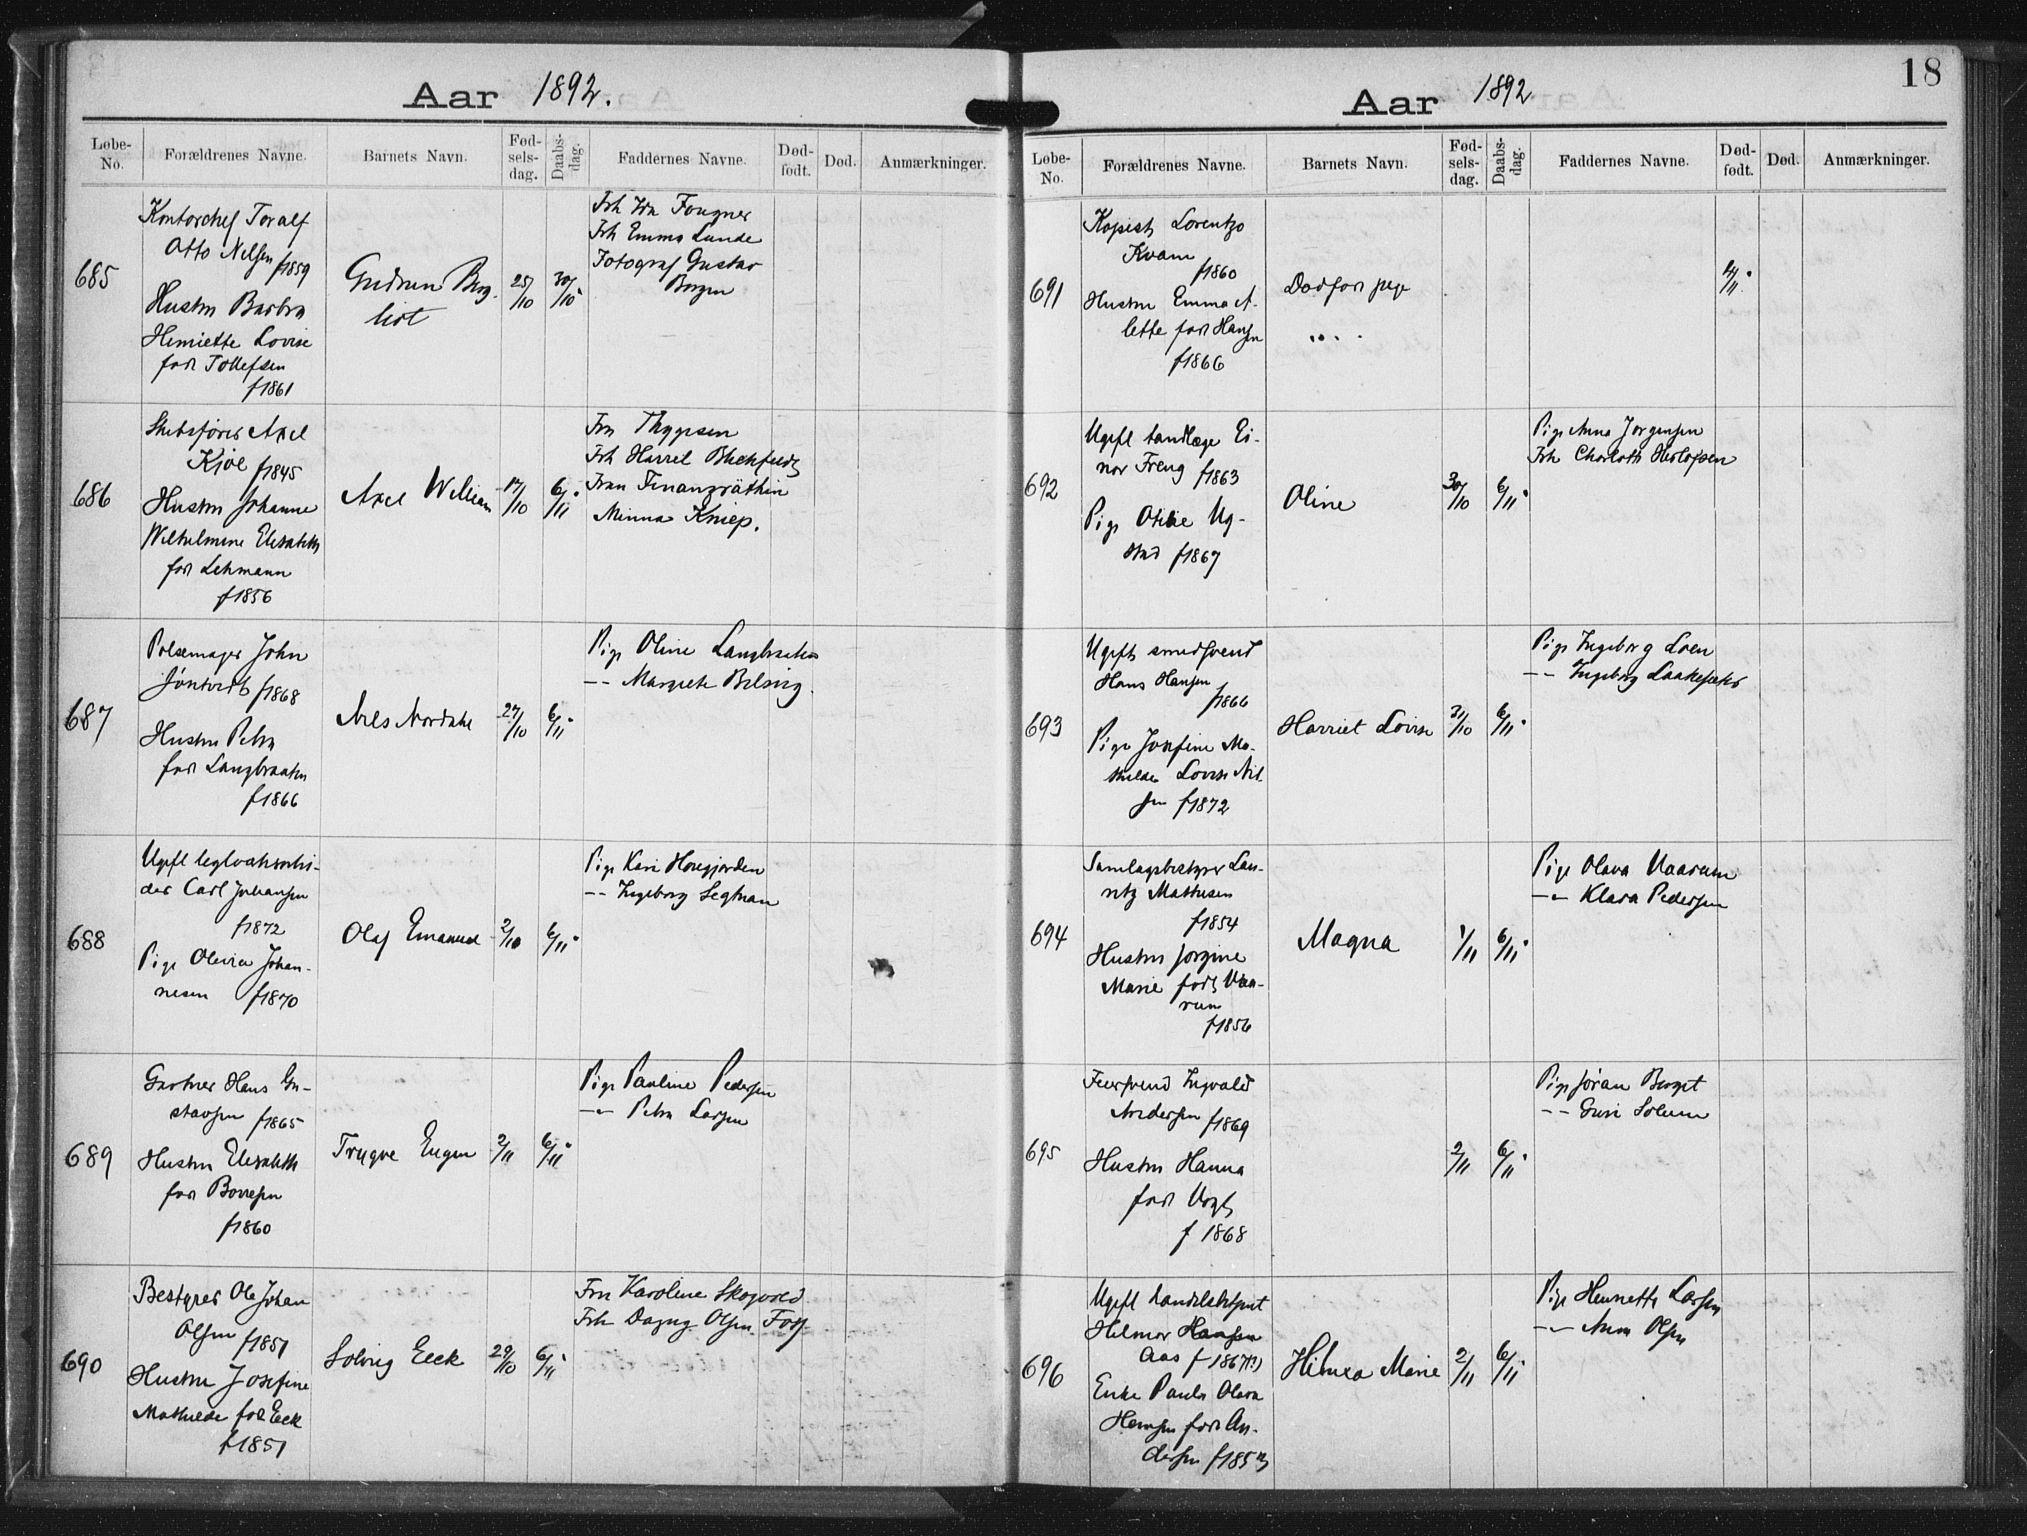 Aar 1892.
Løbe-No. Forældrenes Navne. Barnets Navn. Fød-sels-dag. Daabs-dag. Faddernes Navne. Død-født. Død. Anmærkninger.
685
Kontorchef Toralf
Otto Nelsen f1859
Hustru Barbra
Henriette Lovise
fød Tollefsen
f1861
Gudrun Berg-
liot
25/10
30/10
Frk Ida Fougner
Frk Emma Lunde
Fotograf Gustav
Borgen
686
Skibsfører Axel
Kjøl f1845
Hustru Johanne
Wilhelmine Elisabeth
fød Lehmann
f1856
Axel William
17/10
6/11
Fru Thygesen
Frk Harrel
Frau Finanzräthin
Minna Kniep.
687
Polsemager John
f1868
Hustru Petra
fød Langbraaten
f1866
Nils Nordahl
27/10
6/11
Pige Oline Langbraaten
-- Margrete
688
Ugift teglværksarbei-
der Carl Johansen
f1872
Pige Olivia Johan-
nesen f1870
Olaf Emanuel
2/10
6/11
Pige Kari
-- Ingeborg
689
Gartner Hans Gu-
stavsen f1865
Hustru Elisabeth
fød Borresen
f1860
Trygve Eugen
2/11
6/11
Pige Pauline Pedersen
-- Petra Larsen
690
Bestyrer Ole Johan
Olsen f1851
Hustru Josefine
Mathilde fød Eeck
f1851
Solveig Eeck
29/10
6/11
Fru Karoline Skogvold
Frk Dagny Olsen Foss
18
Aar 1892
Løbe-No. Forældrenes Navne. Barnets Navn. Fød-sels-dag. Daabs-dag. Faddernes Navne. Død-født. Død. Anmærkninger.
691
Kopist Lorentzo
Kvam
f1860
Hustru Emma A-
lette fød Hansen
f1866
Dødfød pige
4/11
692
Ugift tandlæge Ei-
nar Freng f1863
Pige Otilie Ug-
stad f1867
Oline
30/10
6/11
Pige Anna Jørgensen
Frk Charlotte Herlofsen
693
Ugift smedsvend
Hans Hansen
f1866
Pige Josefine Ma-
thilde Lovise Nil-
sen f1872
Harriet Lovise
31/10
6/11
Pige Ingeborg Loen
-- Ingeborg
694
Samlagsbestyrer Lau-
ritz Mathisen
f1854
Hustru Jorgine
Marie født Vaa-
rum
f1856
Magna
1/11
6/11
Pige Olava Vaarum
-- Klara Pedersen
695
Feiersvend Ingvald
Andersen f1869
Hustru Hanna
fød Vogt
f 1868
2/11
6/11
Pige Jøran Berget
-- Guri Solum
696
Ugift handelsbetjent
Hilmar Hansen
Aas f 1867(?)
Enke Paula Olava
Hansen fød An-
dersen f185
Hilmea Marie
2/11
6/11
Pige Henriette Larsen
-- Anna Olsen